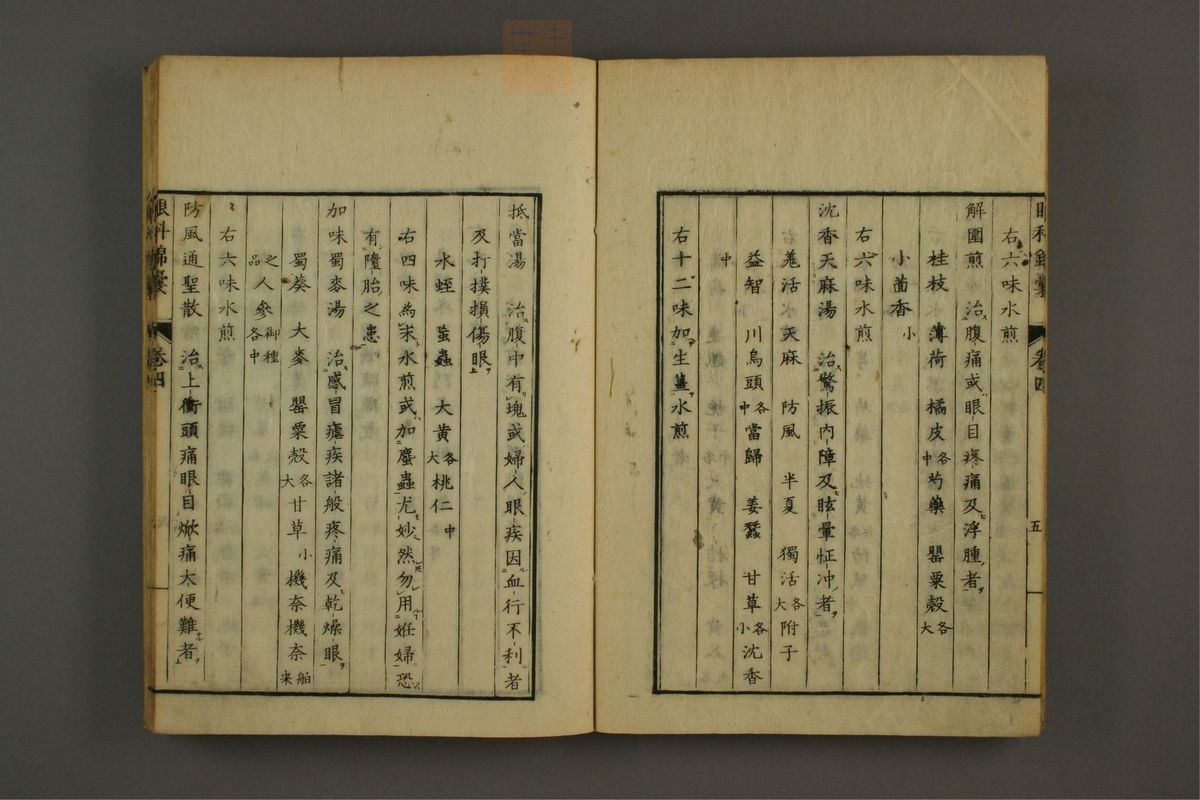 右六味水煎
解圍煎　治腹痛或眼目疼痛及浮腫者
桂枝　薄荷　橘皮各中　芍藥　罌粟殼各大
小茴香小
右六味水煎
沈香天麻湯　治驚振內障及眩暈怔冲者
羗活　天麻　防風　半夏　獨活各大　附子
益智　川烏頭各中　當歸　姜蠶　甘草各小　沈香
中
右十二味加生薑水煎
眼科錦囊　卷四　五
抵當湯　治腹中有塊或婦人眼疾因血行不利者
及打撲損傷眼
水蛭　䖟蟲　大黃各大　桃仁中
右四味為末水煎或加䗪蟲尤妙然勿用姙婦恐
有墮胎之患
加味蜀麥湯　治感冒瘧疾諸般疼痛及乾燥眼
蜀葵　大麥　罌粟殼各大　甘草小　機奈機奈舶来
之品　人參御種各中
右六味水煎
防風通聖散　治上衝頭痛眼目焮痛大便難者
眼科錦囊　卷四